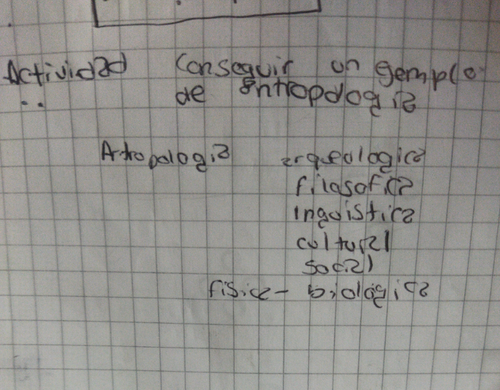 Actividad conseguir un gemplo
de antropologia
Atropologia arqueologica
filosofica
inguistica
cultural
social
fisica - biologica